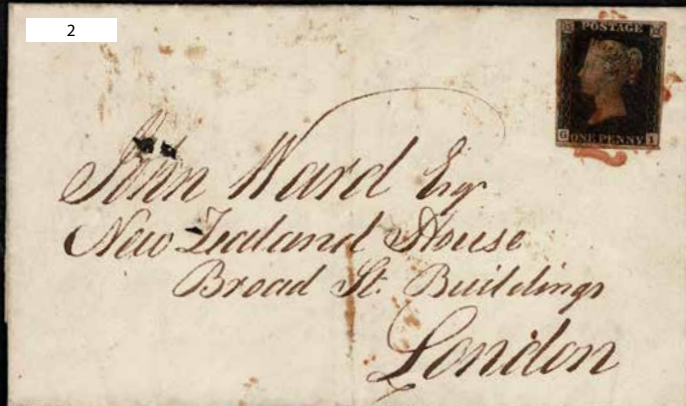 2
POSTAGE
G ONE PENNY I
John Ward Esqr
New Zealand House
Broad St. Buildings
London